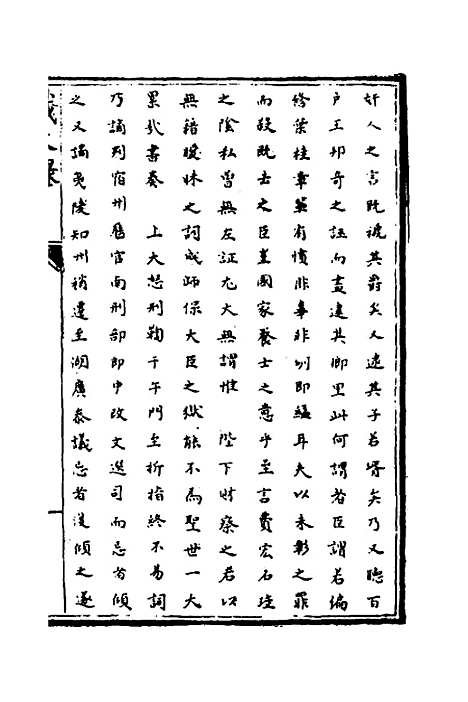 奸人之言既褫其爵矣又逮其子若壻矣乃又聽百
户王邦奇之誣而盡逮其鄉里此何謂者臣謂若編
修葉桂章有憤非辜非刎即縊耳夫以未彰之罪
而殺既士之臣豈國家養士之意乎至言費宏石珤
之陰私曾無左証尤大無謂惟 陛下財察之若以
無籍曖昧之詞成師保大臣之獄能不為聖世一大
累哉書奏 上大怒刑鞫于午門至折指終不易詞
乃謫判宿州歷官南刑部郎中改文選司而忌者傾
之又謫夷陵知州稍遷至湖廣參議忌者復傾之遂